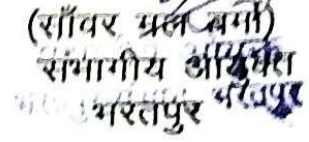 (साँवर मल वर्मा)
संभागीय आयुक्त
भरतपुर भरतपुर